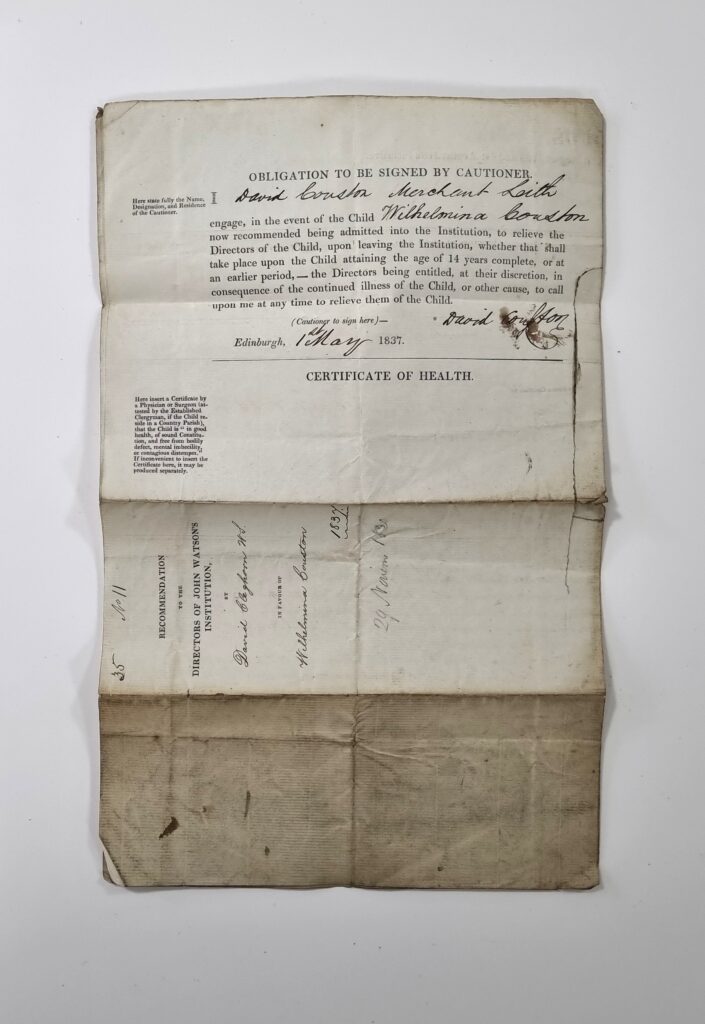 OBLIGATION TO BE SIGNED BY CAUTIONER.
Here state fully the Name,
Designation, and Residence
of the Cautioner.
I David Couston Merchant Leith
engage, in the event of the Child Wilhelmina Couston
now recommended being admitted into the Institution, to relieve the
Directors of the Child, upon leaving the Institution, whether that shall
take place upon the Child attaining the age of 14 years complete, or at
an earlier period,—the Directors being entitled, at their discretion, in
consequence of the continued illness of the Child, or other cause, to call
upon me at any time to relieve them of the Child.
(Cautioner to sign here)— David Couston
Edinburgh, 1st May 1837.
CERTIFICATE OF HEALTH.
Here insert a Certificate by
a Physician or Surgeon (at-
tested by the Established
Clergyman, if the Child re-
side in a Country Parish),
that the Child is "in good
health, of sound Constitu-
tion, and free from bodily
defect, mental imbecility,
or contagious distemper."
If inconvenient to insert the
Certificate here, it may be
produced separately.
35 No 11
RECOMMENDATION
TO THE
DIRECTORS OF JOHN WATSON'S
INSTITUTION,
BY
David Cleghorn WS.
IN FAVOUR OF
Wilhelmina Couston
1837
29